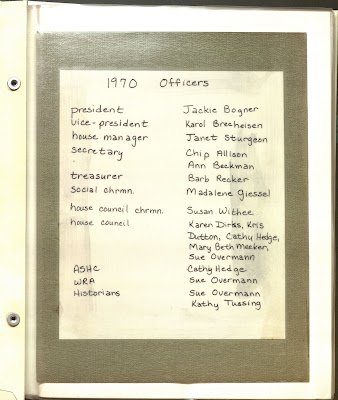 1970 Officers
president Jackie Bogner
vice-president Karol Brecheisen
house manager Janet Sturgeon
secretary Chip Allison
Ann Beckman
treasurer Barb Recker
social chrmn. Madalene Giessel
house council chrmn. Susan Withee
house council Karen Dirks, Kris
Dutton, Cathy Hedge,
Mary Beth Meeker,
Sue Overmann
ASHC Cathy Hedge
WRA Sue Overmann
Historians Sue Overmann
Kathy Tussing